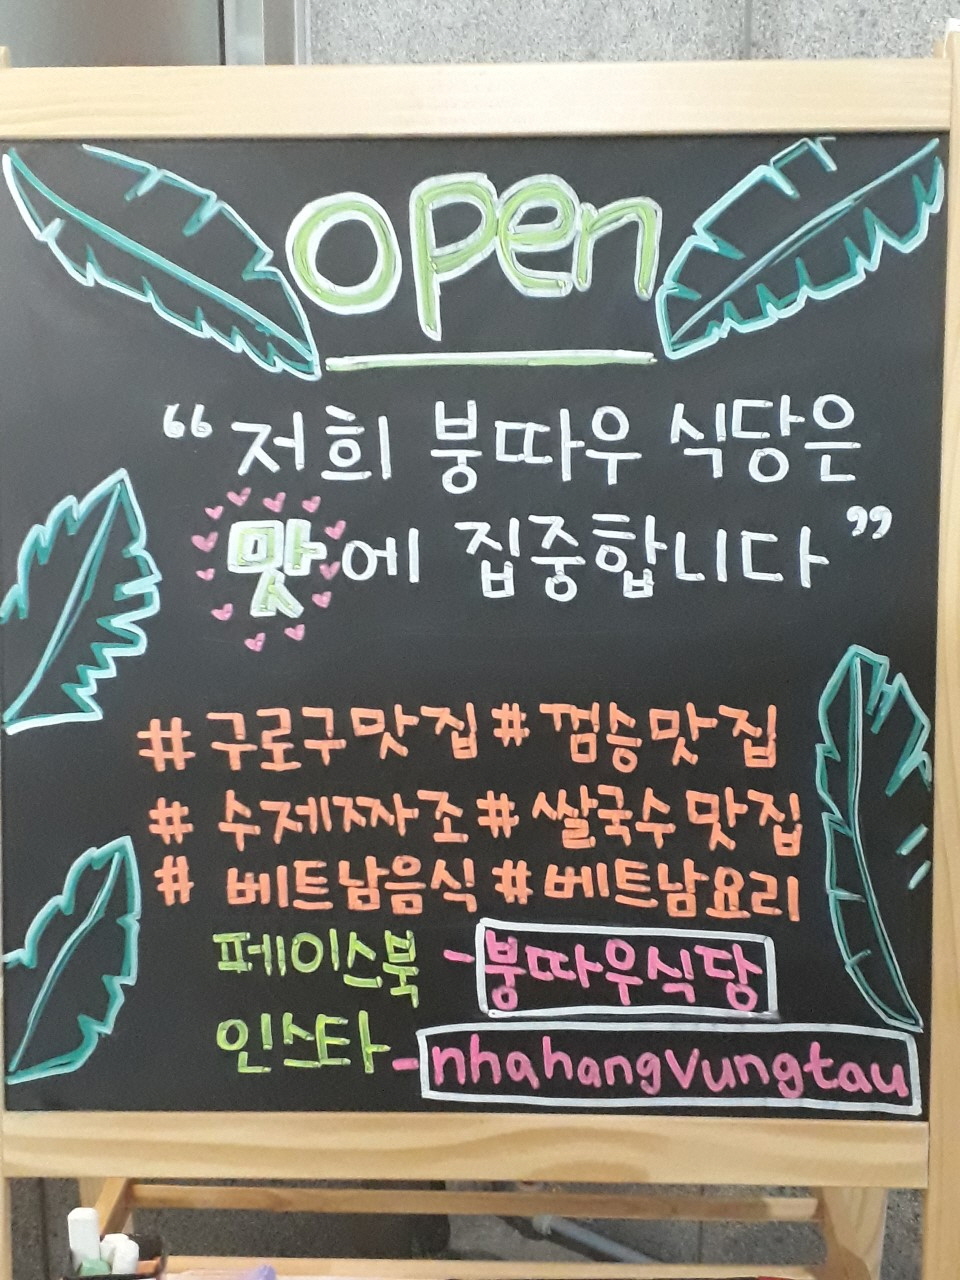 open
“저희 붕따우 식당은
맛에 집중합니다”
#구로구맛집 #껌승맛집
#수제짜조 #쌀국수맛집
#베트남음식 #베트남요리
페이스북 - 붕따우식당
인스타 - nhahangvungtau